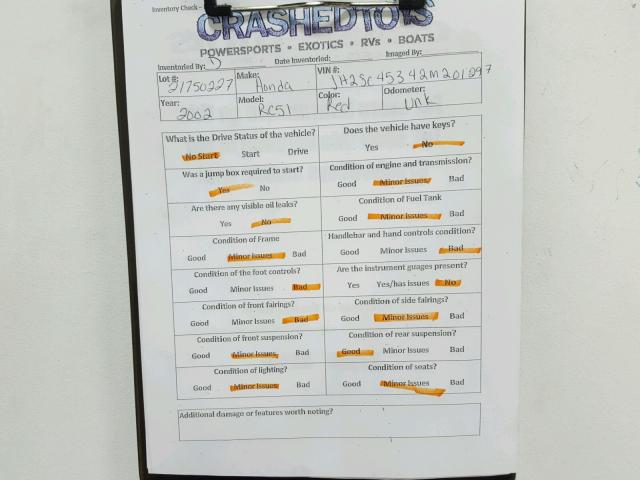 Inventory Check -
CRASHEDTOYS
POWERSPORTS • EXOTICS • RVs • BOATS
Inventoried By: D Date Inventoried: Imaged By:
Lot #: 21750227 Make: Honda VIN #: JH2SC45342M201297
Year: 2002 Model: RC51 Color: Red Odometer: Unk
What is the Drive Status of the vehicle? Does the vehicle have keys?
No Start Start Drive Yes No
Was a jump box required to start? Condition of engine and transmission?
Yes No Good Minor Issues Bad
Are there any visible oil leaks? Condition of Fuel Tank
Yes No Good Minor Issues Bad
Condition of Frame Handlebar and hand controls condition?
Good Minor Issues Bad Good Minor Issues Bad
Condition of the foot controls? Are the instrument guages present?
Good Minor Issues Bad Yes Yes/has issues No
Condition of front fairings? Condition of side fairings?
Good Minor Issues Bad Good Minor Issues Bad
Condition of front suspension? Condition of rear suspension?
Good Minor Issues Bad Good Minor Issues Bad
Condition of lighting? Condition of seats?
Good Minor Issues Bad Good Minor Issues Bad
Additional damage or features worth noting?